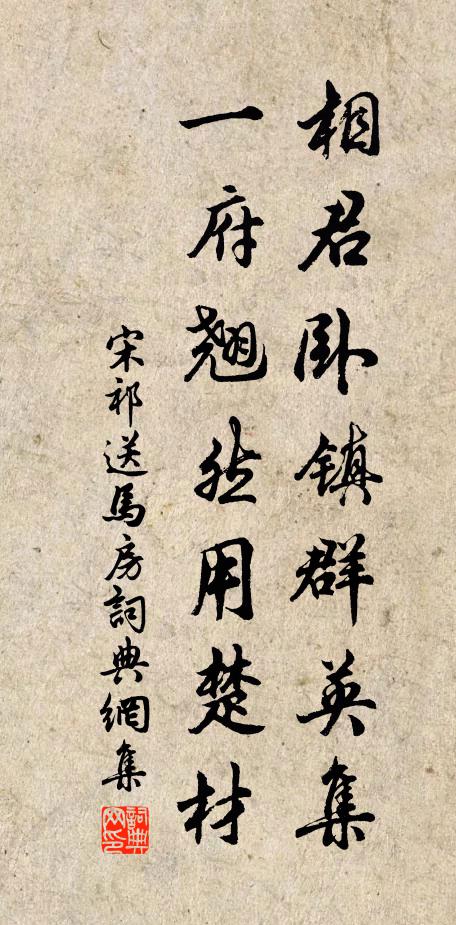 相君卧镇群英集
一府翘然用楚材
宋祁送馬房詞典網集
詞典网印